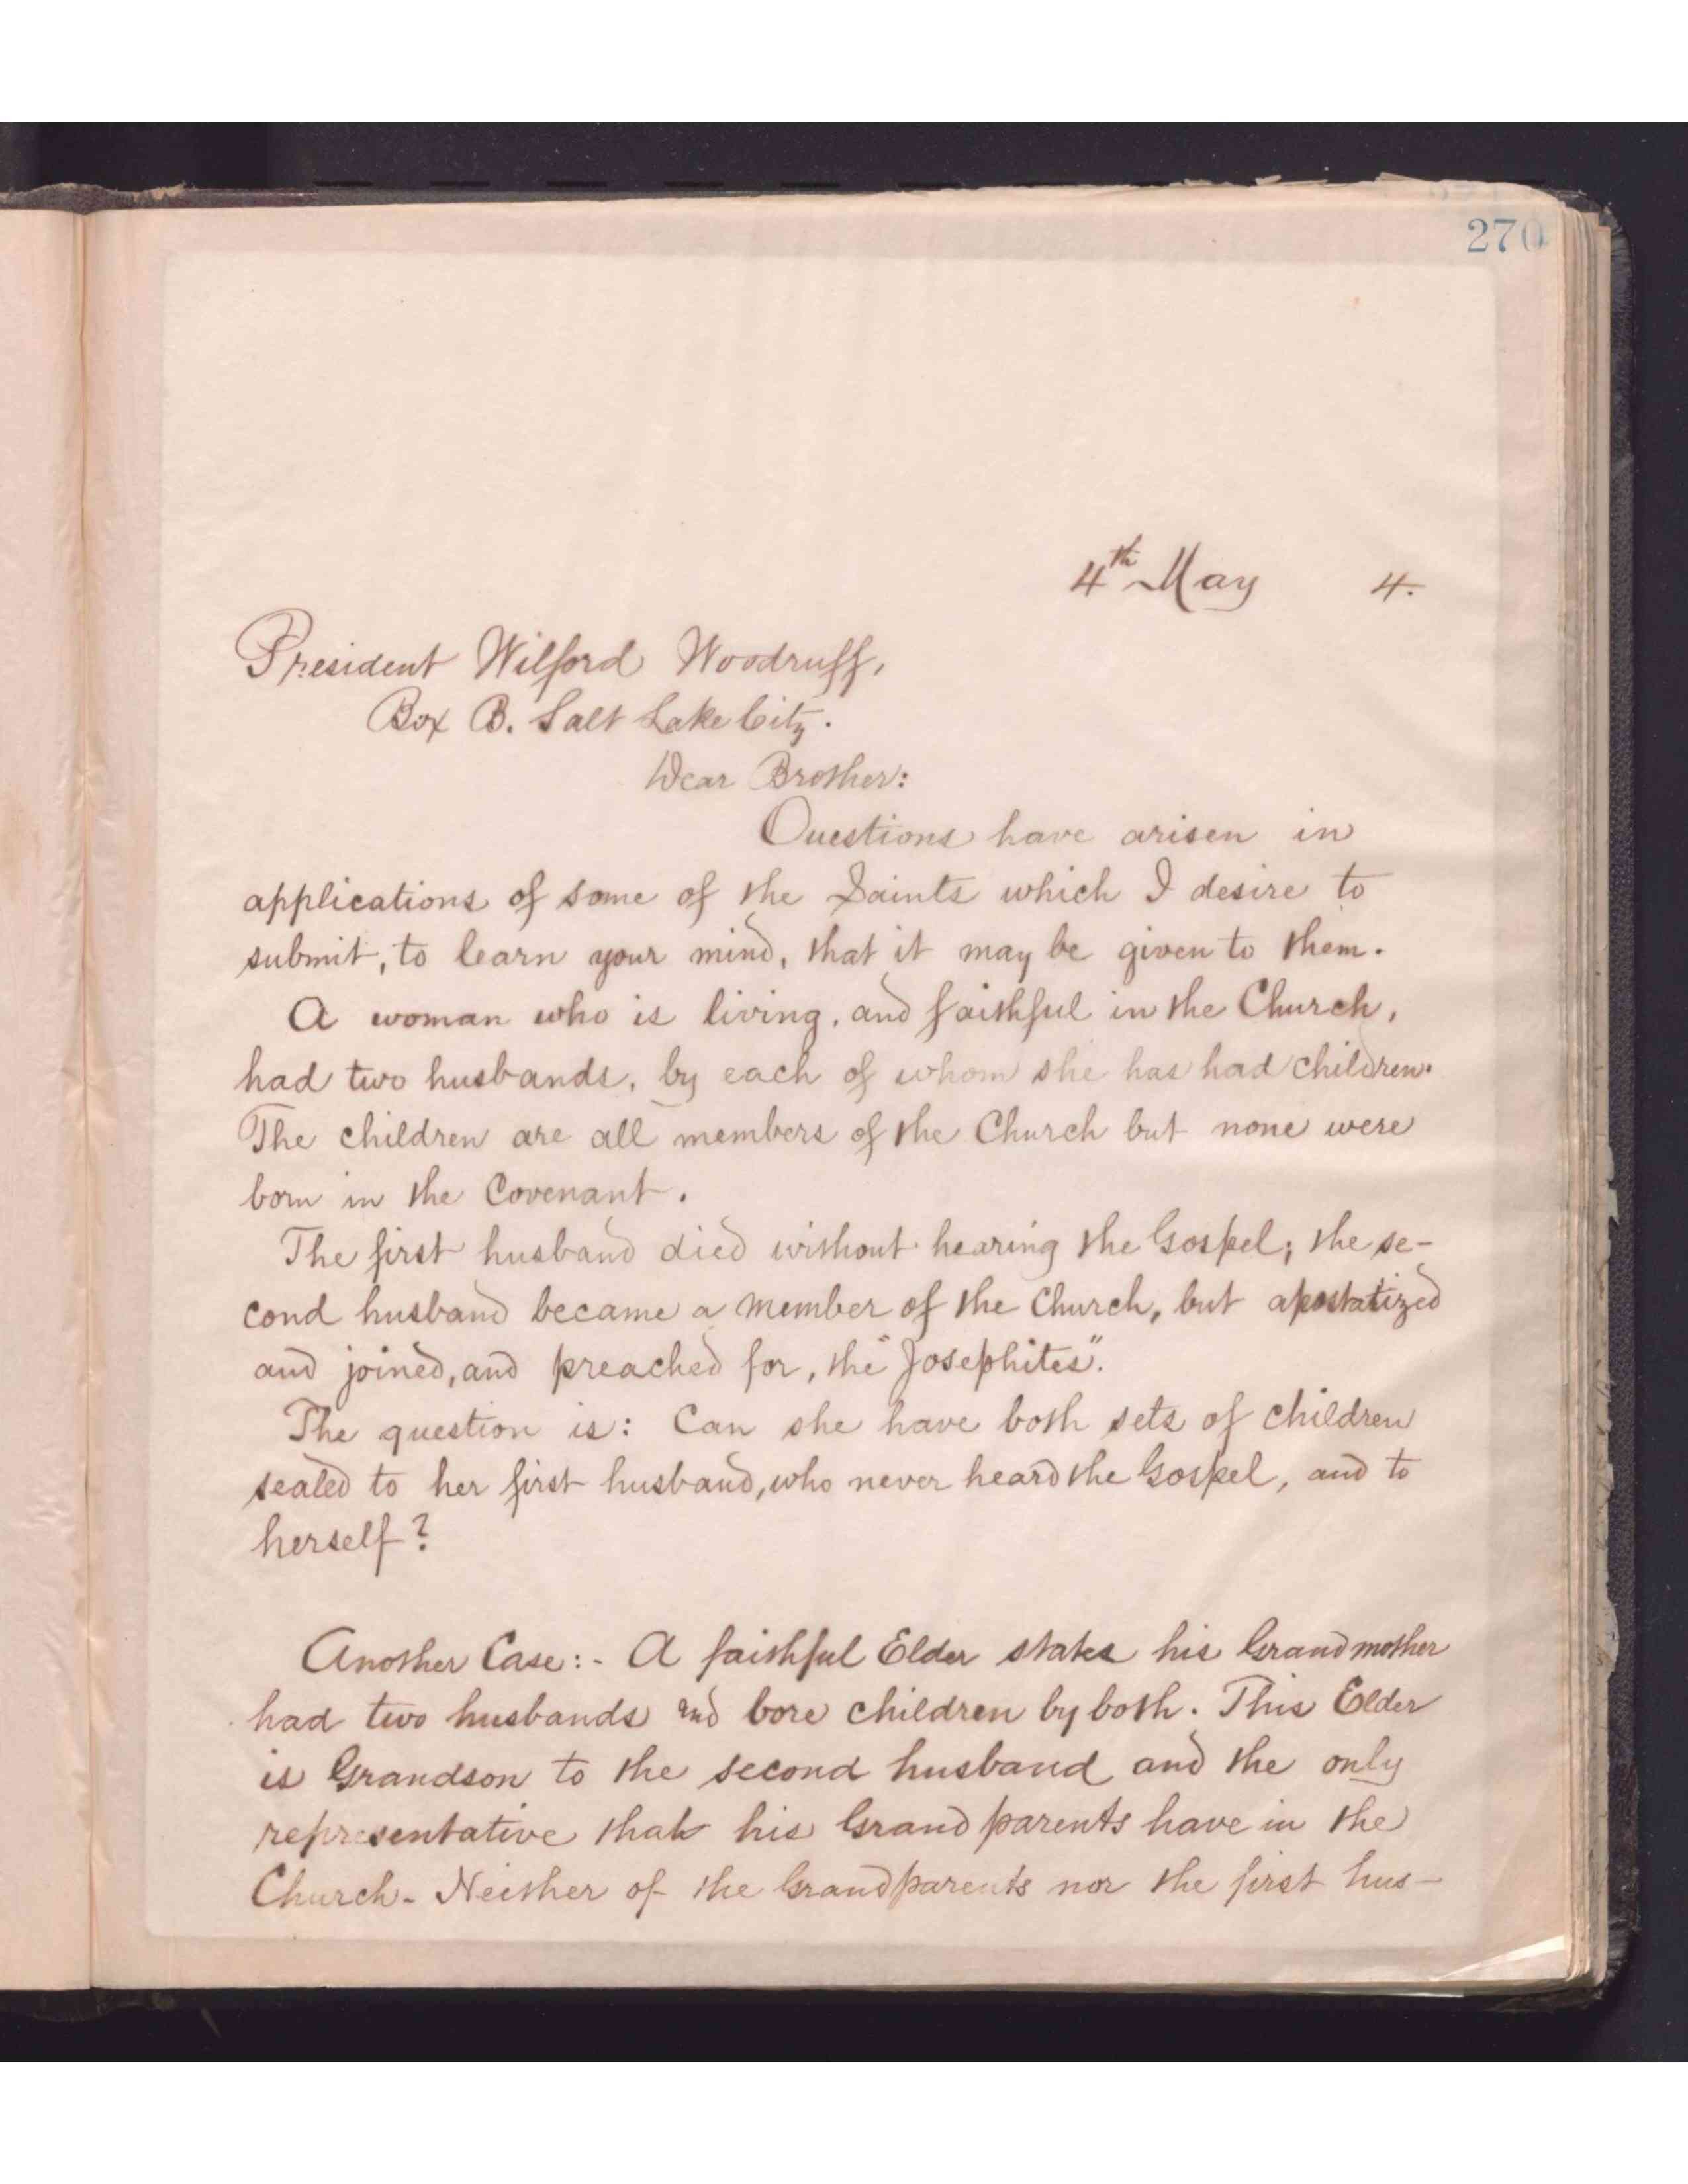 270
4th May 4.
President Wilford Woodruff,
Box B. Salt Lake City.
Dear Brother:
Questions have arisen in
applications of some of the Saints which I desire to
submit, to learn your mind, that it may be given to them.
A woman who is living, and faithful in the Church,
had two husbands, by each of whom she has had children.
The children are all members of the Church but none were
born in the Covenant.
The first husband died without hearing the Gospel; the se-
cond husband became a member of the Church, but apostatized
and joined, and preached for, the "Josephites".
The question is: Can she have both sets of children
sealed to her first husband, who never heard the Gospel, and to
herself?
Another Case:- A faithful Elder states his Grandmother
had two husbands and bore children by both. This Elder
is Grandson to the second husband and the only
representative that his Grand parents have in the
Church. Neither of the Grandparents nor the first hus-